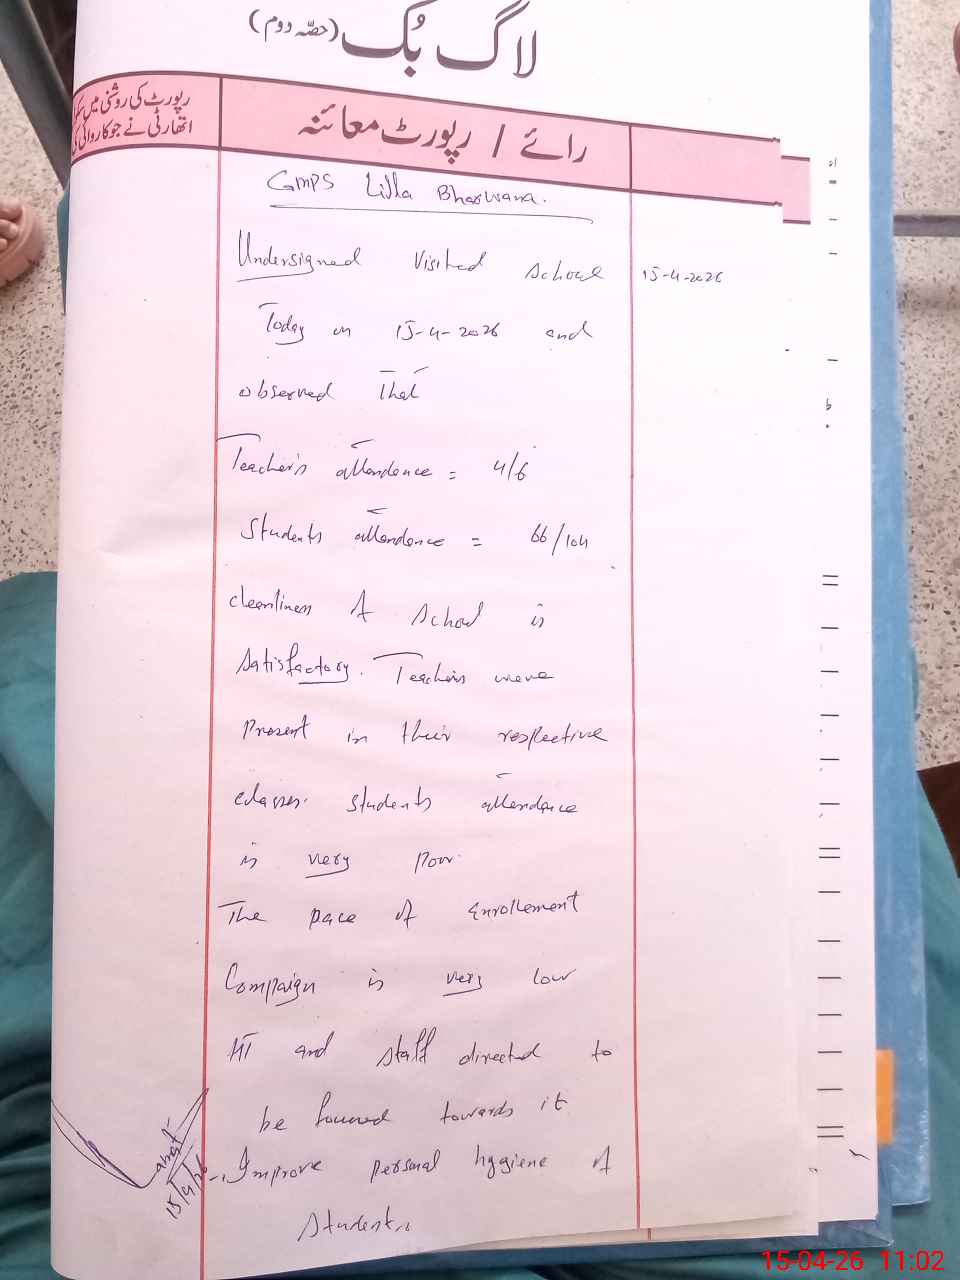 لاگ بُک (حصّہ دوم)
رپورٹ کی روشنی میں
اتھارٹی نے جو کاروائی کی
رائے / رپورٹ معائنہ
GMPS Lilla Bharwana.
Undersigned Visited School
15-4-2026
Today on 15-4-2026 and
observed That
Teacher's attendence = 4/6
Students attendence = 66/104
cleanliness of School is
satisfactory. Teachers were
Present in their respective
classes. Students attendence
is very Poor.
The pace of Enrollement
Compaign is very low
HT and staff directed to
be focused towards it.
Improve personal hygiene of
Students.
15/4/26
15-04-26 11:02